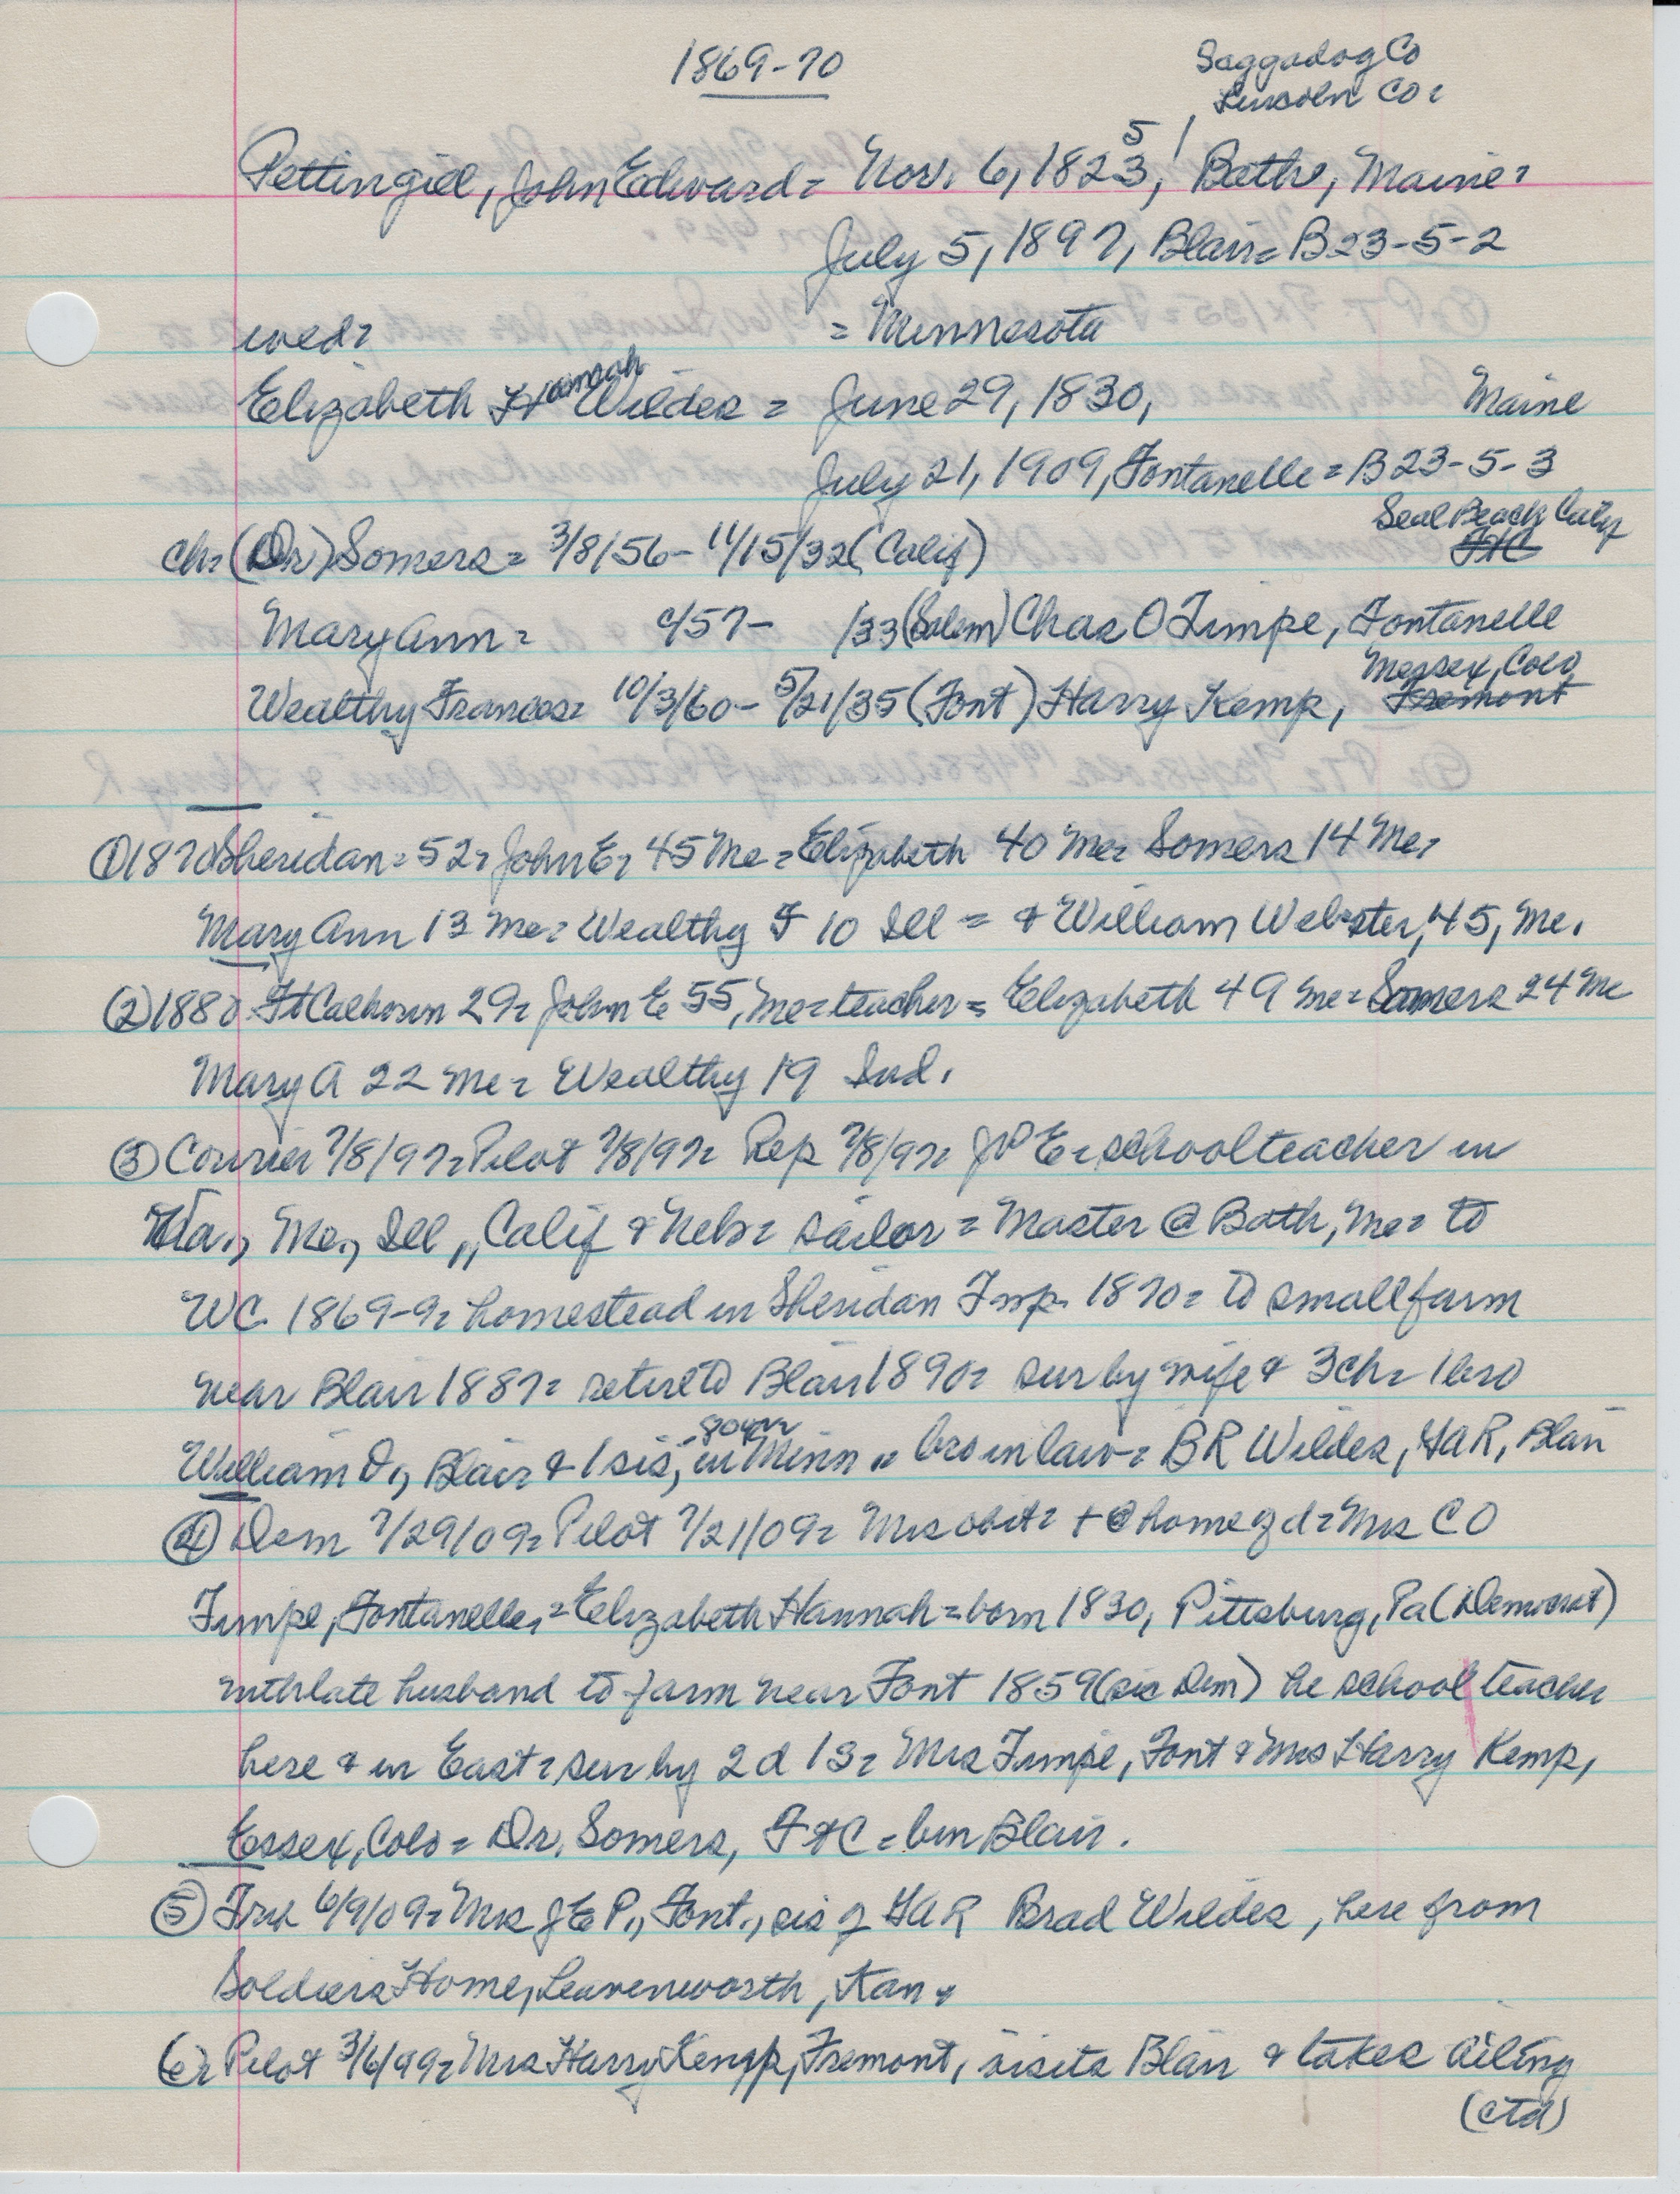 1869-70
Saggadog Co
Lincoln Co =
5
Pettingill, John Edward = Nov. 6, 1823, Bath, Maine =
July 5, 1897, Blair = B23-5-2
wed = = Minnesota
Elizabeth Hannah Wildes = June 29, 1830, Maine
July 21, 1909, Fontanelle = B23-5-3
Seal Beach Calif
ch = (Dr) Somers = 3/8/56 - 11/15/32 (Calif) FtC
Mary Ann = c/57 - /33 (Salem) Chas O Timpe, Fontanelle
Messex, Colo
Wealthy Frances = 10/3/60 - 5/21/35 (Font) Harry Kemp, Fremont
① 1870 Sheridan = 52 = John E = 45 Me = Elizabeth 40 Me = Somers 14 Me =
Mary Ann 13 Me = Wealthy F 10 Ill = & William Webster, 45, Me.
② 1880 FtCalhoun 29 = John E 55, Me = teacher = Elizabeth 49 Me = Somers 24 Me
Mary A 22 Me = Wealthy 19 Ind.
③ Courier 7/8/97 = Pilot 7/8/97 = Rep 7/8/97 = J P E = schoolteacher in
Me., Ill., Calif & Neb = sailor = Master @ Bath, Me = to
WC 1869-9 = homestead in Sheridan Twp. 1870 = to small farm
near Blair 1887 = retire to Blair 1890 = sur by wife & 3 ch = 1 bro
William D., Blair & 1 sis, in Minn = bro in law = BR Wildes, GAR, Blair
④ Dem 7/29/09 = Pilot 7/21/09 = Mrs obit = + @ home of d = Mrs CO
Timpe, Fontanelle, = Elizabeth Hannah = born 1830, Pittsburg, Pa (Democrat)
with late husband to farm near Font 1859 (sic Dem) he school teacher
here & in East = sur by 2 d 1 s = Mrs Timpe, Font & Mrs Harry Kemp,
Essex, Colo = Dr. Somers, FtC = bur Blair.
⑤ Trib 6/9/09 = Mrs J E P., Font., sis of GAR Brad Wildes, here from
Soldiers Home, Leavenworth, Kan.
⑥ = Pilot 3/6/99 = Mrs Harry Kemp, Fremont, visits Blair & takes ailing
(ctd)